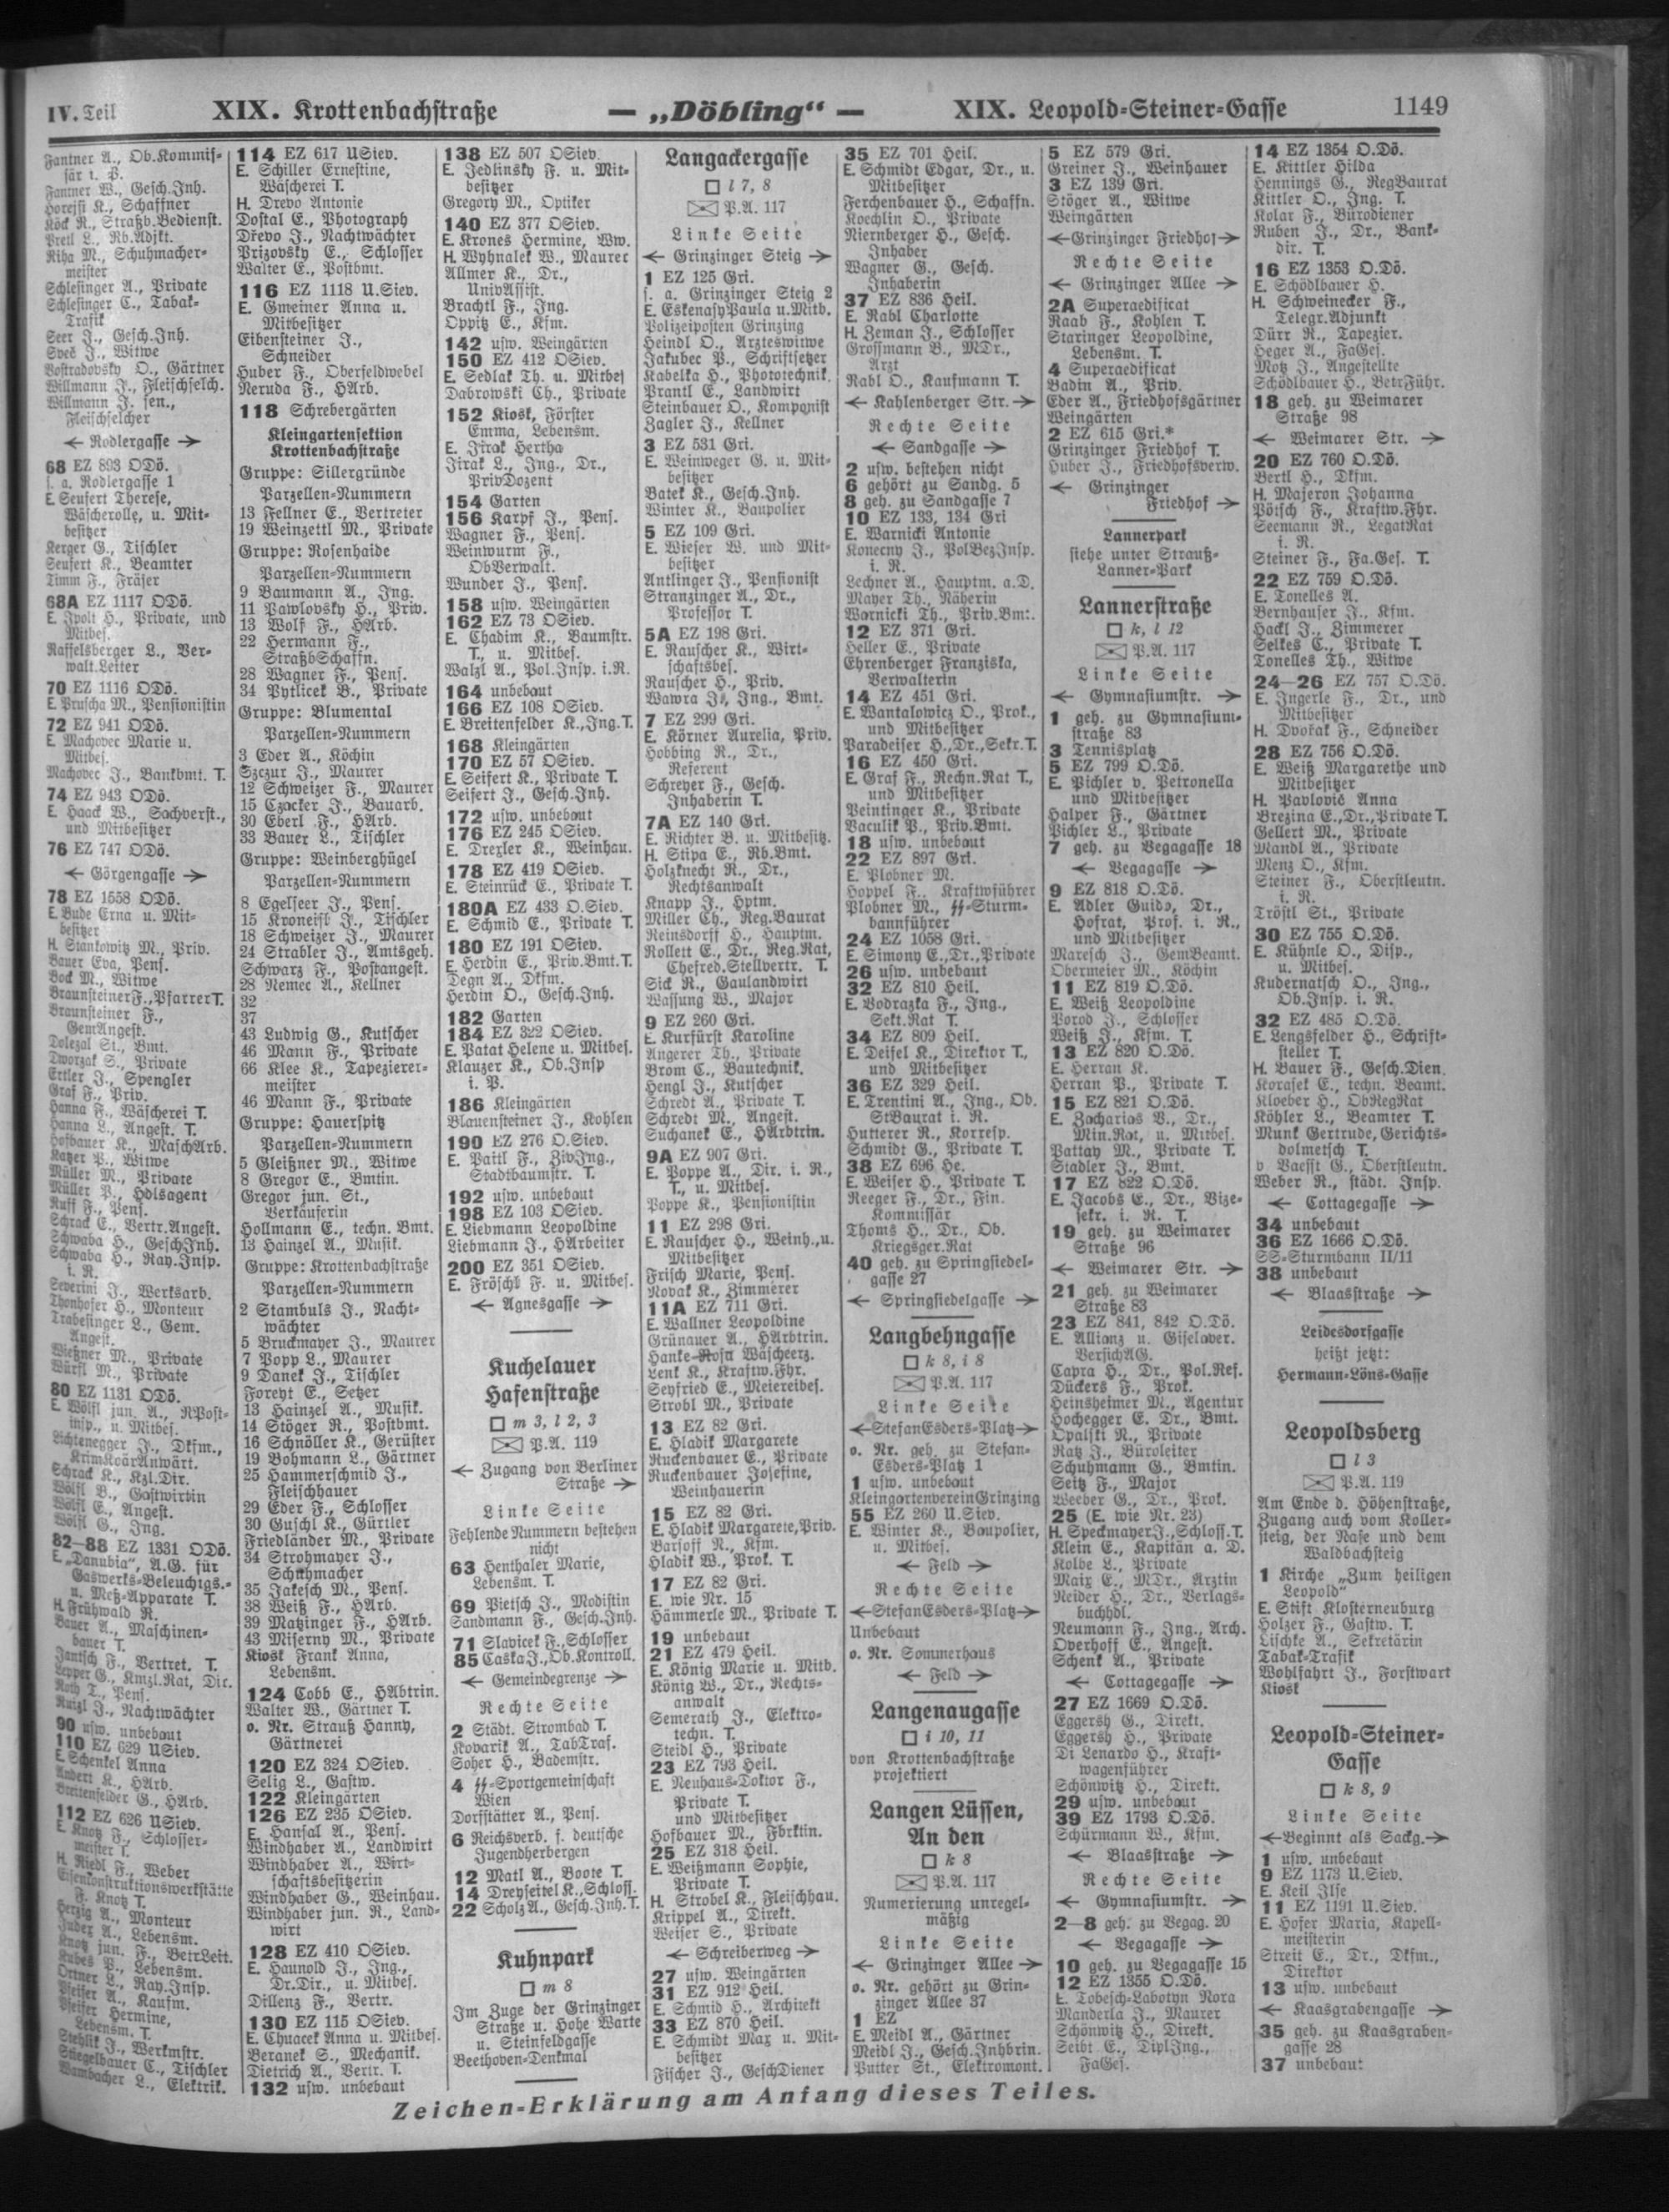 IV. Teil
XIX. Krottenbachstraße
— „Döbling“ —
XIX. Leopold-Steiner-Gasse
1149
Fantner A., Ob.Kommis-
sär i. P.
Fantner W., Gesch.Inh.
Horejsi K., Schaffner
Köck R., Straßb.Bedienst.
Preil L., Rb.Adjkt.
Riha M., Schuhmacher-
meister
Schlesinger A., Private
Schlesinger C., Tabak-
Trafik
Seer J., Gesch.Inh.
Sveč J., Witwe
Vostradovsky O., Gärtner
Willmann J., Fleischselch.
Willmann J. sen.,
Fleischselcher
← Rodlergasse →
68 EZ 893 ODö.
s. a. Rodlergasse 1
E. Seufert Therese,
Wäscherolle, u. Mit-
besitzer
Kerger G., Tischler
Seufert K., Beamter
Timm F., Fräser
68A EZ 1117 ODö.
E. Ipolt H., Private, und
Mitbes.
Raffelsberger L., Ver-
walt.Leiter
70 EZ 1116 ODö.
E. Pruscha M., Pensionistin
72 EZ 941 ODö.
E. Machovec Marie u.
Mitbes.
Machovec J., Bankbmt. T.
74 EZ 943 ODö.
E. Haack W., Sachverst.,
und Mitbesitzer
76 EZ 747 ODö.
← Görgengasse →
78 EZ 1558 ODö.
E. Bude Erna u. Mit-
besitzer
H. Stankowitz M., Priv.
Bauer Eva, Pens.
Bock M., Witwe
Braunsteiner F., Pfarrer T.
Braunsteiner F.,
GemAngest.
Dolezal St., Bmt.
Dworzak S., Private
Ertler J., Spengler
Graf F., Priv.
Hanna F., Wäscherei T.
Hanna L., Angest. T.
Hofbauer K., MaschArb.
Katzer P., Witwe
Müller M., Private
Müller P., Hdlsagent
Ruff F., Pens.
Schrack E., Vertr.Angest.
Schwaba H., GeschInh.
Schwaba H., Ray.Insp.
i. R.
Severini J., Werksarb.
Thonhofer H., Monteur
Trabesinger L., Gem.
Angest.
Wießner M., Private
Würfl M., Private
80 EZ 1131 ODö.
E. Wölfl jun. A., RPost-
insp., u. Mitbes.
Lichtenegger J., Dkfm.,
KrimKoärAnwärt.
Schrack K., Kzl.Dir.
Wölfl B., Gastwirtin
Wölfl E., Angest.
Wölfl G., Ing.
82—88 EZ 1331 ODö.
E. „Danubia“, A.G. für
Gaswerks-Beleuchtgs.-
u. Meß-Apparate T.
H. Frühwald R.
Bauer A., Maschinen-
bauer T.
Jantsch F., Vertret. T.
Lepper G., Kmzl.Rat, Dir.
Roth T., Pens.
Ruizl J., Nachtwächter
90 usw. unbebaut
110 EZ 629 USiev.
E. Schenkel Anna
Andert K., HArb.
Breitenfelder G., HArb.
112 EZ 626 USiev.
E. Knotz F., Schlosser-
meister T.
H. Riedl F., Weber
Eisenkonstruktionswerkstätte
F. Knotz T.
Herzig A., Monteur
Juder A., Lebensm.
Knotz jun. F., BetrLeit.
Kubes P., Lebensm.
Ortner L., Ray.Insp.
Pfeifer A., Kaufm.
Pfeifer Hermine,
Lebensm. T.
Stehlik J., Werkmstr.
Stiegelbauer C., Tischler
Wambacher L., Elektrik.
114 EZ 617 USiev.
E. Schiller Ernestine,
Wäscherei T.
H. Drevo Antonie
Dostal E., Photograph
Dřevo J., Nachtwächter
Prizovsky E., Schlosser
Walter E., Postbmt.
116 EZ 1118 U.Siev.
E. Gmeiner Anna u.
Mitbesitzer
Eibensteiner J.,
Schneider
Huber F., Oberfeldwebel
Neruda F., HArb.
118 Schrebergärten
Kleingartensektion
Krottenbachstraße
Gruppe: Sillergründe
Parzellen-Nummern
13 Fellner E., Vertreter
19 Weinzettl M., Private
Gruppe: Rosenhaide
Parzellen-Nummern
9 Baumann A., Ing.
11 Pawlovsky H., Priv.
13 Wolf F., HArb.
22 Hermann F.,
StraßbSchaffn.
28 Wagner F., Pens.
34 Pytlicek B., Private
Gruppe: Blumental
Parzellen-Nummern
3 Eder A., Köchin
Szczur J., Maurer
12 Schweizer F., Maurer
15 Czacker J., Bauarb.
30 Eberl F., HArb.
33 Bauer L., Tischler
Gruppe: Weinberghügel
Parzellen-Nummern
8 Egelseer J., Pens.
15 Kroneisl J., Tischler
18 Schweizer J., Maurer
24 Strabler J., Amtsgeh.
Schwarz F., Postangest.
28 Nemec A., Kellner
32
37
43 Ludwig G., Kutscher
46 Mann F., Private
66 Klee K., Tapezierer-
meister
46 Mann F., Private
Gruppe: Hauerspitz
Parzellen-Nummern
5 Gleißner M., Witwe
8 Gregor E., Bmtin.
Gregor jun. St.,
Verkäuferin
Hollmann E., techn. Bmt.
13 Hainzel A., Musik.
Gruppe: Krottenbachstraße
Parzellen-Nummern
2 Stambuls J., Nacht-
wächter
5 Bruckmayer J., Maurer
7 Popp L., Maurer
9 Danek J., Tischler
Foreyt E., Setzer
13 Hainzel A., Musik.
14 Stöger R., Postbmt.
16 Schnöller K., Gerüster
19 Bohmann L., Gärtner
25 Hammerschmid J.,
Fleischhauer
29 Eder F., Schlosser
30 Guschl K., Gürtler
Friedländer M., Private
34 Strohmayer J.,
Schuhmacher
35 Jakesch M., Pens.
38 Weiß F., HArb.
39 Matzinger F., HArb.
43 Miserny M., Private
Kiosk Frank Anna,
Lebensm.
124 Cobb E., HAbtrin.
Walter W., Gärtner T.
o. Nr. Strauß Hanny,
Gärtnerei
120 EZ 324 OSiev.
Selig L., Gastw.
122 Kleingärten
126 EZ 235 OSiev.
E. Hansal A., Pens.
Windhaber A., Landwirt
Windhaber A., Wirt-
schaftsbesitzerin
Windhaber G., Weinhau.
Windhaber jun. R., Land-
wirt
128 EZ 410 OSiev.
E. Haunold J., Ing.,
Dr.Dir., u. Mitbes.
Dillenz F., Vertr.
130 EZ 115 OSiev.
E. Chuacek Anna u. Mitbes.
Beranek S., Mechanik.
Dietrich A., Vertr. T.
132 usw. unbebaut
138 EZ 507 OSiev.
E. Jedlinsky F. u. Mit-
besitzer
Gregory M., Optiker
140 EZ 377 OSiev.
E. Krones Hermine, Ww.
H. Wyhnalek W., Maurer
Allmer K., Dr.,
UnivAssist.
Brachtl F., Ing.
Oppitz E., Kfm.
142 usw. Weingärten
150 EZ 412 OSiev.
E. Sedlak Th. u. Mitbes
Dabrowski Ch., Private
152 Kiosk, Förster
Emma, Lebensm.
E. Jirak Hertha
Jirak L., Ing., Dr.,
PrivDozent
154 Garten
156 Karpf J., Pens.
Wagner F., Pens.
Weinwurm F.,
ObVerwalt.
Wunder J., Pens.
158 usw. Weingärten
162 EZ 73 OSiev.
E. Chadim K., Baumstr.
T., u. Mitbes.
Walzl A., Pol.Insp. i.R.
164 unbebaut
166 EZ 108 OSiev.
E. Breitenfelder K., Ing. T.
168 Kleingärten
170 EZ 57 OSiev.
E. Seifert K., Private T.
Seifert J., Gesch.Inh.
172 usw. unbebaut
176 EZ 245 OSiev.
E. Drexler K., Weinhau.
178 EZ 419 OSiev.
E. Steinrück E., Private T.
180A EZ 433 O.Siev.
E. Schmid E., Private T.
180 EZ 191 OSiev.
E. Herdin E., Priv.Bmt. T.
Degn A., Dkfm.
Herdin O., Gesch.Inh.
182 Garten
184 EZ 322 OSiev.
E. Patat Helene u. Mitbes.
Klauzer K., Ob.Insp
i. P.
186 Kleingärten
Blauensteiner J., Kohlen
190 EZ 276 O.Siev.
E. Paitl F., ZivIng.,
Stadtbaumstr. T.
192 usw. unbebaut
198 EZ 103 OSiev.
E. Liebmann Leopoldine
Liebmann J., HArbeiter
200 EZ 351 OSiev.
E. Fröschl F. u. Mitbes.
← Agnesgasse →
Kuchelauer
Hafenstraße
□ m 3, l 2, 3
P.A. 119
← Zugang von Berliner
Straße →
Linke Seite
Fehlende Nummern bestehen
nicht
63 Henthaler Marie,
Lebensm. T.
69 Pietsch J., Modistin
Sandmann F., Gesch.Inh.
71 Slavicek F., Schlosser
85 Caska J., Ob.Kontroll.
← Gemeindegrenze →
Rechte Seite
2 Städt. Strombad T.
Kovarik A., TabTraf.
Soher H., Bademstr.
4 SS-Sportgemeinschaft
Wien
Dorfstätter A., Pens.
6 Reichsverb. f. deutsche
Jugendherbergen
12 Matl A., Boote T.
14 Dreyseitel K., Schloss.
22 Scholz A., Gesch.Inh. T.
Kuhnpark
□ m 8
Im Zuge der Grinzinger
Straße u. Hohe Warte
u. Steinfeldgasse
Beethoven-Denkmal
Langackergasse
□ l 7, 8
P.A. 117
Linke Seite
← Grinzinger Steig →
1 EZ 125 Gri.
s. a. Grinzinger Steig 2
E. Eskenasy Paula u. Mitb.
Polizeiposten Grinzing
Heindl O., Arzteswitwe
Jakubec P., Schriftsetzer
Kabelka H., Phototechnik.
Prantl E., Landwirt
Steinbauer O., Komponist
Zagler J., Kellner
3 EZ 531 Gri.
E. Weinweger G. u. Mit-
besitzer
Batek K., Gesch.Inh.
Winter K., Baupolier
5 EZ 109 Gri.
E. Wieser W. und Mit-
besitzer
Antlinger J., Pensionist
Stranzinger A., Dr.,
Professor T.
5A EZ 198 Gri.
E. Rauscher K., Wirt-
schaftsbes.
Rauscher H., Priv.
Wawra J., Ing., Bmt.
7 EZ 299 Gri.
E. Körner Aurelia, Priv.
Hobbing R., Dr.,
Referent
Schreyer F., Gesch.
Inhaberin T.
7A EZ 140 Gri.
E. Richter B. u. Mitbesitz.
H. Stipa E., Rb.Bmt.
Holzknecht R., Dr.,
Rechtsanwalt
Knapp J., Hptm.
Miller Ch., Reg.Baurat
Reinsdorff H., Hauptm.
Rollett E., Dr., Reg.Rat,
Chefred.Stellvertr. T.
Sick R., Gaulandwirt
Wassung W., Major
9 EZ 260 Gri.
E. Kurfürst Karoline
Angerer Th., Private
Brom C., Bautechnik.
Hengl J., Kutscher
Schredt A., Private T.
Schredt M., Angest.
Suchanek E., HArbtrin.
9A EZ 907 Gri.
E. Poppe A., Dir. i. R.,
T., u. Mitbes.
Poppe K., Pensionistin
11 EZ 298 Gri.
E. Rauscher H., Weinh., u.
Mitbesitzer
Frisch Marie, Pens.
Novak K., Zimmerer
11A EZ 711 Gri.
E. Wallner Leopoldine
Grünauer A., HArbtrin.
Hanke Rosa Wäscheerz.
Lenk K., Kraftw.Fhr.
Seyfried E., Meiereibes.
Strobl M., Private
13 EZ 82 Gri.
E. Hladik Margarete
Ruckenbauer E., Private
Ruckenbauer Josefine,
Weinhauerin
15 EZ 82 Gri.
E. Hladik Margarete, Priv.
Barsoff N., Kfm.
Hladik W., Prok. T.
17 EZ 82 Gri.
E. wie Nr. 15
Hämmerle M., Private T.
19 unbebaut
21 EZ 479 Heil.
E. König Marie u. Mitb.
König W., Dr., Rechts-
anwalt
Semerath J., Elektro-
techn. T.
Steidl H., Private
23 EZ 793 Heil.
E. Neuhaus-Doktor F.,
Private T.
und Mitbesitzer
Hofbauer M., Fbrktin.
25 EZ 318 Heil.
E. Weißmann Sophie,
Private T.
H. Strobel K., Fleischhau.
Krippel A., Direkt.
Weiser S., Private
← Schreiberweg →
27 usw. Weingärten
31 EZ 912 Heil.
E. Schmid H., Architekt
33 EZ 870 Heil.
E. Schmidt Max u. Mit-
besitzer
Fischer J., GeschDiener
35 EZ 701 Heil.
E. Schmidt Edgar, Dr., u.
Mitbesitzer
Ferchenbauer H., Schaffn.
Koechlin O., Private
Niernberger H., Gesch.
Inhaber
Wagner G., Gesch.
Inhaberin
37 EZ 836 Heil.
E. Rabl Charlotte
H. Zeman J., Schlosser
Grossmann B., MDr.,
Arzt
Rabl O., Kaufmann T.
← Kahlenberger Str. →
Rechte Seite
← Sandgasse →
2 usw. bestehen nicht
6 gehört zu Sandg. 5
8 geh. zu Sandgasse 7
10 EZ 133, 134 Gri
E. Warnicki Antonie
Konecny J., PolBezInsp.
i. R.
Lechner A., Hauptm. a.D.
Mayer Th., Näherin
Warnicki Th., Priv.Bmt.
12 EZ 371 Gri.
Heller E., Private
Ehrenberger Franziska,
Verwalterin
14 EZ 451 Gri.
E. Wantalowicz O., Prok.,
und Mitbesitzer
Paradeiser H., Dr., Sekr. T.
16 EZ 450 Gri.
E. Graf F., Rechn.Rat T.,
und Mitbesitzer
Peintinger K., Private
Vaculik P., Priv.Bmt.
18 usw. unbebaut
22 EZ 897 Gri.
E. Plobner M.
Hoppel F., Kraftwführer
Plobner M., SS-Sturm-
bannführer
24 EZ 1058 Gri.
E. Simony E., Dr., Private
26 usw. unbebaut
32 EZ 810 Heil.
E. Vodrazka F., Ing.,
Sekt.Rat T.
34 EZ 809 Heil.
E. Deifel K., Direktor T.,
und Mitbesitzer
36 EZ 329 Heil.
E. Trentini A., Ing., Ob.
StBaurat i. R.
Hutterer R., Korresp.
Schmidt G., Private T.
38 EZ 696 He.
E. Weiser H., Private T.
Reeger F., Dr., Fin.
Kommissär
Thoms H., Dr., Ob.
Kriegsger.Rat
40 geh. zu Springsiedel-
gasse 27
← Springsiedelgasse →
Langbehngasse
□ k 8, i 8
P.A. 117
Linke Seite
←StefanEsders-Platz→
o. Nr. geh. zu Stefan-
Esders-Platz 1
1 usw. unbebaut
KleingartenvereinGrinzing
55 EZ 260 U.Siev.
E. Winter K., Baupolier,
u. Mitbes.
← Feld →
Rechte Seite
←StefanEsders-Platz→
Unbebaut
o. Nr. Sommerhaus
← Feld →
Langenaugasse
□ i 10, 11
von Krottenbachstraße
projektiert
Langen Lüssen,
An den
□ k 8
P.A. 117
Numerierung unregel-
mäßig
Linke Seite
← Grinzinger Allee →
o. Nr. gehört zu Grin-
zinger Allee 37
1 EZ
E. Meidl A., Gärtner
Meidl J., Gesch.Inhbrin.
Putter St., Elektromont.
5 EZ 579 Gri.
Greiner J., Weinhauer
3 EZ 139 Gri.
Stöger A., Witwe
Weingärten
←Grinzinger Friedhof→
Rechte Seite
← Grinzinger Allee →
2A Superaedificat
Raab F., Kohlen T.
Staringer Leopoldine,
Lebensm. T.
4 Superaedificat
Badin A., Priv.
Eder A., Friedhofsgärtner
Weingärten
2 EZ 615 Gri.*
Grinzinger Friedhof T.
Huber J., Friedhofsverw.
← Grinzinger
Friedhof →
Lannerpark
siehe unter Strauß-
Lanner-Park
Lannerstraße
□ k, l 12
P.A. 117
Linke Seite
← Gymnasiumstr. →
1 geh. zu Gymnasium-
straße 83
3 Tennisplatz
5 EZ 799 O.Dö.
E. Pichler v. Petronella
und Mitbesitzer
Halper F., Gärtner
Pichler L., Private
7 geh. zu Vegagasse 18
← Vegagasse →
9 EZ 818 O.Dö.
E. Adler Guido, Dr.,
Hofrat, Prof. i. R.,
und Mitbesitzer
Maresch J., GemBeamt.
Obermeier M., Köchin
11 EZ 819 O.Dö.
E. Weiß Leopoldine
Porod J., Schlosser
Weiß J., Kfm. T.
13 EZ 820 O.Dö.
E. Herran K.
Herran P., Private T.
15 EZ 821 O.Dö.
E. Zacharias B., Dr.,
Min.Rat, u. Mitbes.
Pattay M., Private T.
Stadler J., Bmt.
17 EZ 822 O.Dö.
E. Jacobs E., Dr., Vize-
sekr. i. R. T.
19 geh. zu Weimarer
Straße 96
← Weimarer Str. →
21 geh. zu Weimarer
Straße 83
23 EZ 841, 842 O.Dö.
E. Allianz u. Giselaver.
VersichAG.
Capra H., Dr., Pol.Ref.
Dückers F., Prok.
Heinsheimer M., Agentur
Hochegger E. Dr., Bmt.
Opalski N., Private
Ratz J., Büroleiter
Schuhmann G., Bmtin.
Seitz F., Major
Weeber G., Dr., Prok.
25 (E. wie Nr. 23)
H. Speckmayer J., Schloss. T.
Klein E., Kapitän a. D.
Kolbe L., Private
Maix E., MDr., Arztin
Reider H., Dr., Verlags-
buchhdl.
Neumann F., Ing., Arch.
Overhoff E., Angest.
Schenk A., Private
← Cottagegasse →
27 EZ 1669 O.Dö.
Eggersh G., Direkt.
Eggersh H., Private
Di Lenardo H., Kraft-
wagenführer
Schönwitz H., Direkt.
29 usw. unbebaut
39 EZ 1793 O.Dö.
Schürmann W., Kfm.
← Blaasstraße →
Rechte Seite
← Gymnasiumstr. →
2—8 geh. zu Vegag. 20
← Vegagasse →
10 geh. zu Vegagasse 15
12 EZ 1355 O.Dö.
E. Tobesch-Labotyn Nora
Manderla J., Maurer
Schönwitz H., Direkt.
Seibt E., DiplIng.,
FaGes.
14 EZ 1354 O.Dö.
E. Kittler Hilda
Hennings G., RegBaurat
Kittler O., Ing. T.
Kolar F., Bürodiener
Ruben J., Dr., Bank-
dir. T.
16 EZ 1353 O.Dö.
E. Schödlbauer H.
H. Schweinecker F.,
Telegr.Adjunkt
Dürr R., Tapezier.
Heger A., FaGes.
Motz J., Angestellte
Schödlbauer H., BetrFühr.
18 geh. zu Weimarer
Straße 98
← Weimarer Str. →
20 EZ 760 O.Dö.
Bertl H., Dkfm.
H. Majeron Johanna
Pötsch F., Kraftw.Fhr.
Seemann R., LegatRat
i. R.
Steiner F., Fa.Ges. T.
22 EZ 759 O.Dö.
E. Tonelles A.
Bernhauser J., Kfm.
Hackl J., Zimmerer
Selkes C., Private T.
Tonelles Th., Witwe
24—26 EZ 757 O.Dö.
E. Ingerle F., Dr., und
Mitbesitzer
H. Dvořak F., Schneider
28 EZ 756 O.Dö.
E. Weiß Margarethe und
Mitbesitzer
H. Pavlović Anna
Brezina E., Dr., Private T.
Gellert M., Private
Mandl A., Private
Menz O., Kfm.
Steiner F., Oberstleutn.
i. R.
Tröstl St., Private
30 EZ 755 O.Dö.
E. Kühnle O., Disp.,
u. Mitbes.
Kudernatsch O., Ing.,
Ob.Insp. i. R.
32 EZ 485 O.Dö.
E. Lengsfelder H., Schrift-
steller T.
H. Bauer F., Gesch.Dien.
Korasek E., techn. Beamt.
Kloeber H., ObRegRat
Köhler L., Beamter T.
Munk Gertrude, Gerichts-
dolmetsch T.
v Vaesst G., Oberstleutn.
Weber R., städt. Insp.
← Cottagegasse →
34 unbebaut
36 EZ 1666 O.Dö.
SS-Sturmbann II/11
38 unbebaut
← Blaasstraße →
Leidesdorfgasse
heißt jetzt:
Hermann-Löns-Gasse
Leopoldsberg
□ l 3
P.A. 119
Am Ende d. Höhenstraße,
Zugang auch vom Koller-
steig, der Nase und dem
Waldbachsteig
1 Kirche „Zum heiligen
Leopold“
E. Stift Klosterneuburg
Holzer F., Gastw. T.
Lischke A., Sekretärin
Tabak-Trafik
Wohlfahrt J., Forstwart
Kiosk
Leopold-Steiner-
Gasse
□ k 8, 9
Linke Seite
←Beginnt als Sackg.→
1 usw. unbebaut
9 EZ 1173 U.Siev.
E. Keil Ilse
11 EZ 1191 U.Siev.
E. Hofer Maria, Kapell-
meisterin
Streit E., Dr., Dkfm.,
Direktor
13 usw. unbebaut
← Kaasgrabengasse →
35 geh. zu Kaasgraben-
gasse 28
37 unbebaut
Zeichen-Erklärung am Anfang dieses Teiles.